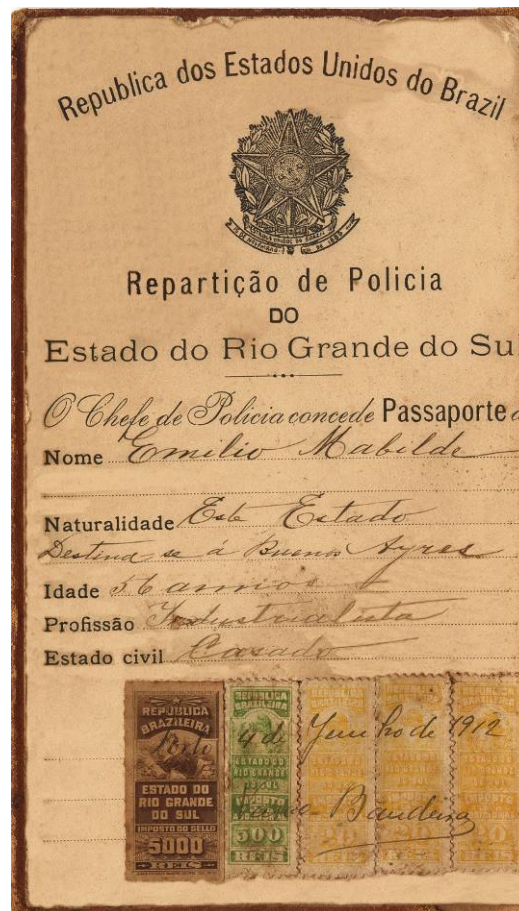 Republica dos Estados Unidos do Brazil
Repartição de Policia
DO
Estado do Rio Grande do Su
O Chefe de Policia concede Passaporte a
Nome Emilio Mabilde
Naturalidade Este Estado
Destina-se á Buenos Ayres
Idade 56 annos
Profissão Industrialista
Estado civil Casado
REPUBLICA
BRAZILEIRA
Porto
ESTADO DO
RIO GRANDE
DO SUL
IMPOSTO DO SELLO
5000
REIS
REPUBLICA
BRAZILEIRA
ESTADO DO
RIO GRANDE
DO SUL
IMPOSTO
500
REIS
4 de Junho de 1912
Bandeira